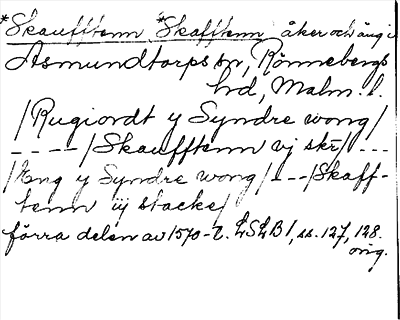 *Skaufftenn *Skafftenn åker och äng i
Asmundtorps sn, Rönnebergs
hd, Malm. l.
/Rugiordt y Syndre wong/
----/Skaufftenn vj skr/---
/Eng y Syndre wong/---/Skaff-
tenn iij stacke/
förra delen av 1570-t. LSLB1, ss. 127, 128.
orig.